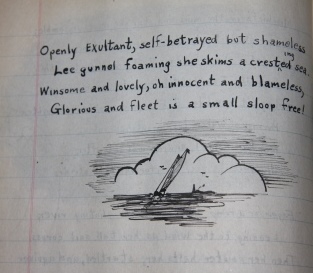 Openly Exultant, self-betrayed but shameless
Lee gunnel foaming she skims a crested sea.
Winsome and lovely, oh innocent and blameless,
Glorious and fleet is a small sloop free!